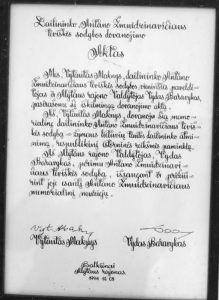 Dailininko Antano Žmuidzinavičiaus
tėviškės sodybos dovanojimo
Aktas
Mes, Vytautas Maknys, dailininko Antano
Žmuidzinavičiaus tėviškės sodybos
ir Alytaus rajono Valdytojas Vydas Baravykas,
pasirašome šį dovanojimo aktą.
Aš, Vytautas Maknys, dovanoju šią memo-
rialinę dailininko Antano Žmuidzinavičiaus tėviš-
kės sodybą - žymaus lietuvių tautos dailininko atmi-
nimą, respublikinį istorinės reikšmės paminklą.
Aš, Alytaus rajono Valdytojas, Vydas
Baravykas, perimu Antano Žmuidzinavi-
čiaus tėviškės sodybą, įsipareigoju
joje Antano Žmuidzinavičiaus
memorialinį muziejų.
Vytautas Maknys Vydas Baravykas
Balkūnai
Alytaus rajonas
1994